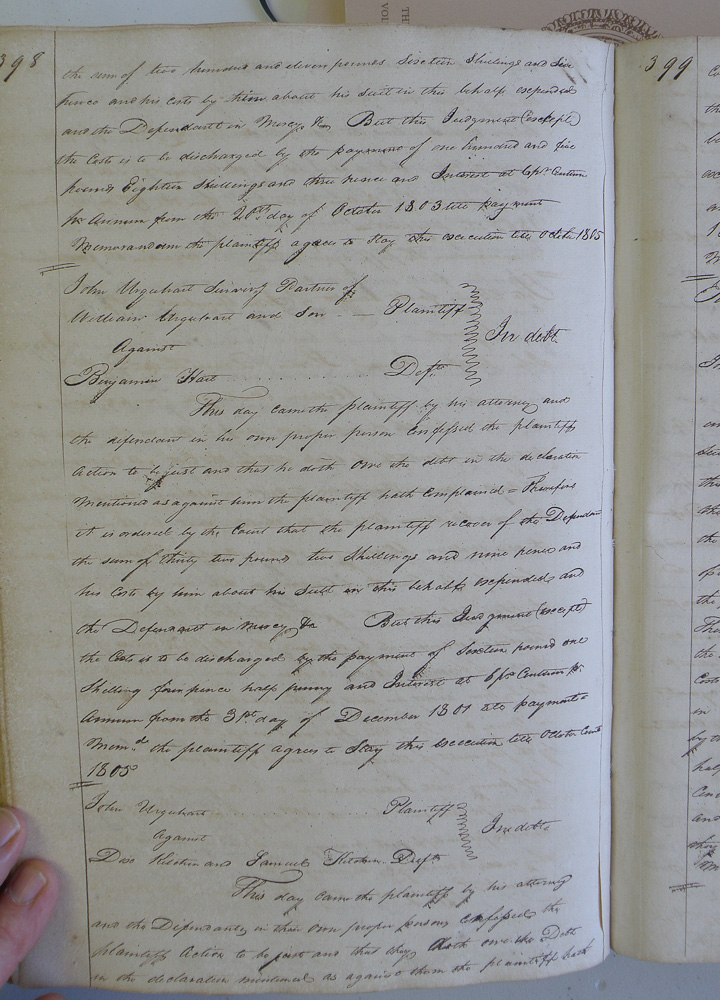 398
the sum of two hundred and eleven pounds Sixteen Shillings and Six
pence and his costs by him about his suit in this behalf expended
and the Defendant in Mercy &c. But this Judgment (except)
the Costs is to be discharged by the payment of one hundred and five
pounds Eighteen Shillings and three pence and Interest at 6 pr Centum
pr Annum from the 20th day of October 1803 till payment
Memorandum the plaintiff agrees to Stay this execution till October 1805
John Urquhart Surving Partner of
William Urquhart and Son — Plaintiff
In debt
Against
Benjamin Hart Deft.
This day came the plaintiff by his attorney and
the defendant in his own proper person Confessed the plaintiffs
Action to be just and that he doth owe the debt in the declaration
Mentioned as against him the plaintiff hath Complained = Therefore
it is ordered by the Court that the plaintiff recover of the Defendant
the sum of thirty two pounds two Shillings and nine pence and
his Costs by him about his Suit in this behalf expended and
the Defendant in Mercy &c But this Judgment (except)
the Costs is to be discharged by the payment of Sixteen pound one
Shilling four pence half penny and Interest at 6 pr Centum pr
Annum from the 31st day of December 1801 till payment=
Memd. the plaintiff agrees to Stay this execution till October Court
1805
John Urquhart Plaintiff
In debt
Against
and Samuel Defts
This day came the plaintiff by his attorney
and the Defendants in their own proper persons Confessed the
plaintiffs Action to be just and that they doth owe the Debt
in the declaration mentioned as against them the plaintiff hath
399